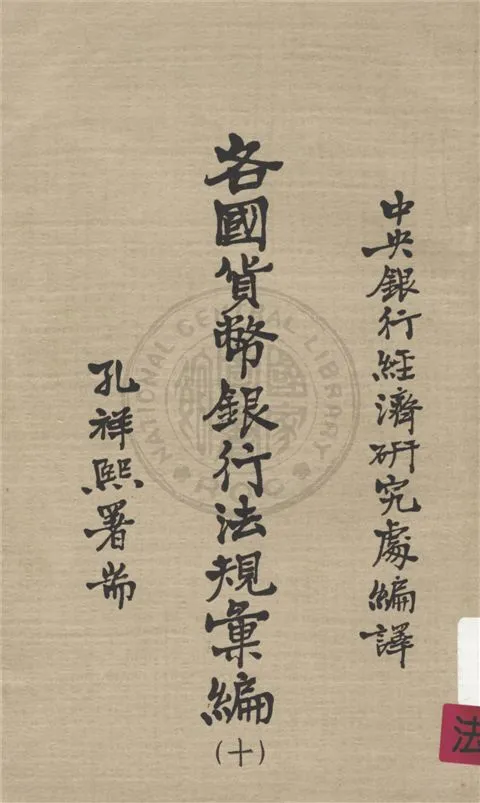 中央銀行經濟研究處編譯
各國貨幣銀行法規彙編
(十)
孔祥熙署耑
NATIONAL CENTRAL LIBRARY
R.O.C.
法